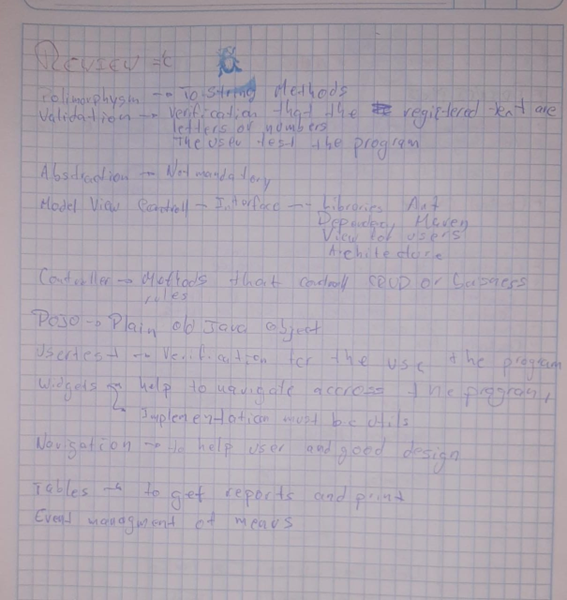 REVIEW
Polimorphysm → ToString Methods
Validation → Verification that the registered text are
letters or numbers
The user test the program
Abstraction → Not mandatory
Model View Controll → Interface → Libraries Ant
Maven
View for users
Architecture
Controller → Methods that controll CRUD or business
rules
POJO → Plain old Java object
Usertest → Verification for the use the program
Widgets → help to navigate accross the program
→ Implementation must be utils
Navigation → to help user and good design
Tables → to get reports and print
Event managment of menus